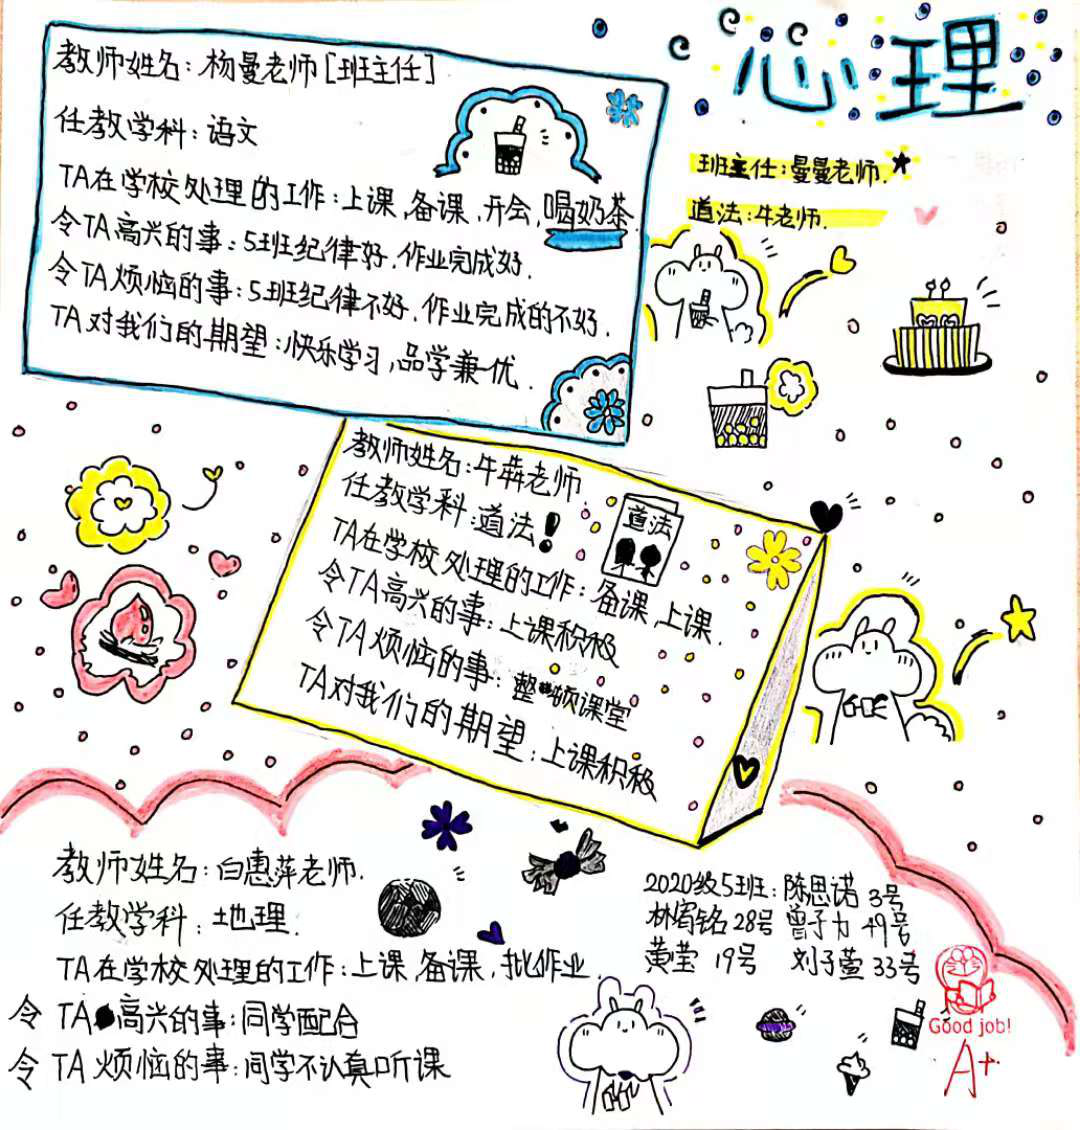 心理
教师姓名:杨曼老师[班主任]
任教学科:语文
TA在学校处理的工作:上课,备课,开会,喝奶茶
令TA高兴的事:5班纪律好.作业完成好.
令TA烦恼的事:5班纪律不好.作业完成的不好.
TA对我们的期望:快乐学习,品学兼优.
班主任:曼曼老师.
道法:牛老师.
教师姓名:牛犇老师.
任教学科:道法!
TA在学校处理的工作:备课,上课.
令TA高兴的事:上课积极
令TA烦恼的事:整顿课堂
TA对我们的期望:上课积极
道法
教师姓名:白惠萍老师.
任教学科:地理.
TA在学校处理的工作:上课,备课,批作业.
令TA高兴的事:同学配合
令TA烦恼的事:同学不认真听课
2020级5班:陈思诺 3号
林宥铭28号 曾子力 49号
黄莹 19号 刘子萱33号
Good job!
A+